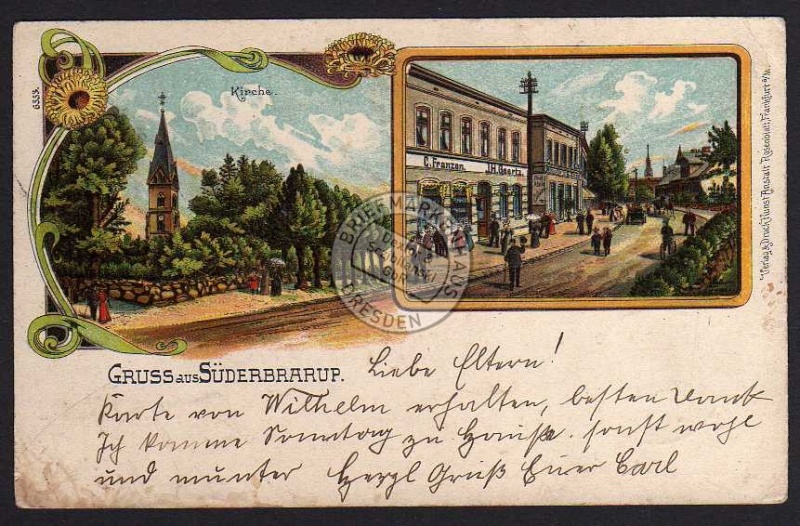 6333.
Kirche.
C. Franzen. J.H. Goertz.
GRUSS aus SÜDERBRARUP.
Liebe Eltern!
Karte von Wilhelm erhalten, besten Dank
Ich komme Sonntag zu Hause. sonst wohl
und munter Herzl Gruß Euer Carl
Verlag & Druck Kunst Anstalt Rosenblatt, Frankfurt a/M.
BRIEFMARKENHAUS
DRESDEN